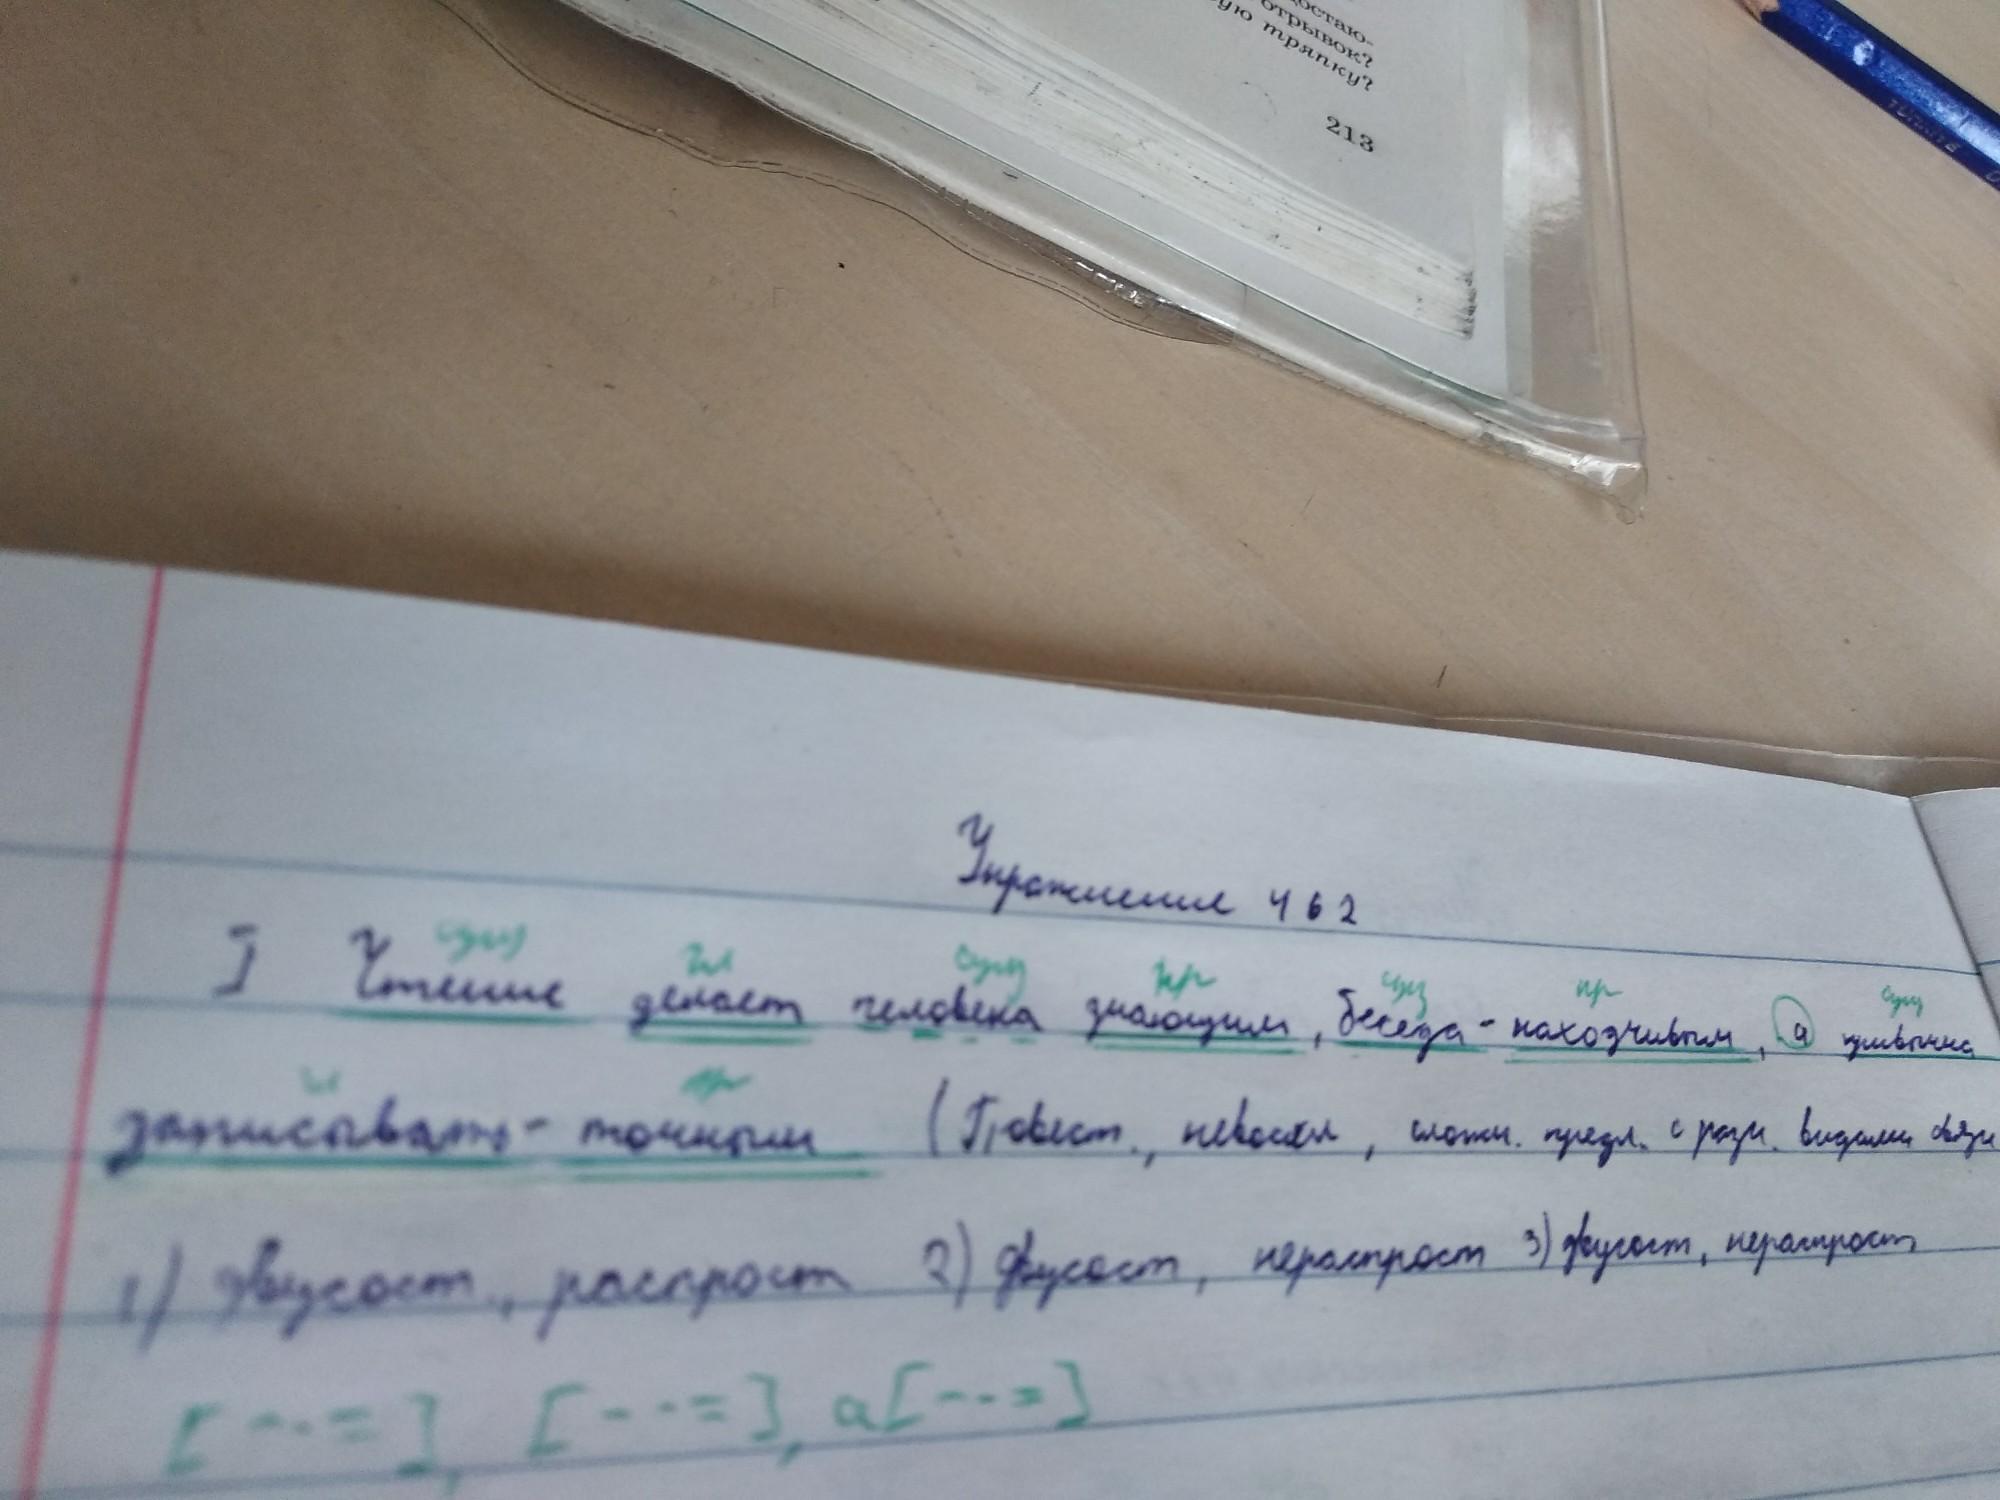 достаю-
отрывок?
ую тряпку?
213
Упражнение 462
сущ гл сущ пр сущ пр сущ
I Чтение делает человека знающим, беседа - находчивым, а привычка
гл пр
записывать - точным (Повест., невоскл, сложн. предл. с разн. видами связи
1) двусост., распрост 2) двусост, нераспрост 3) двусост, нераспрост
[ - · = ], [ - - = ], а [ - · = ]